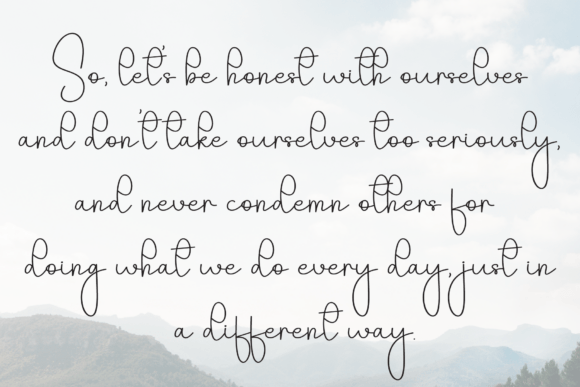 So, let's be honest with ourselves
and don't take ourselves too seriously,
and never condemn others for
doing what we do every day, just in
a different way.